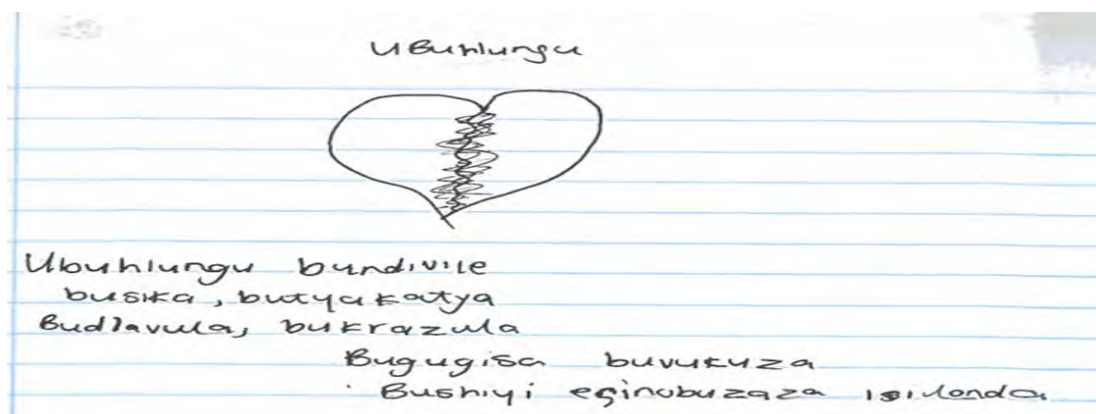 UBuhlungu
Ubuhlungu bundivile
busika, butyakatya
Budlavula, bukrazula
Bugugisa buvukuza
Bushiyi isilonda